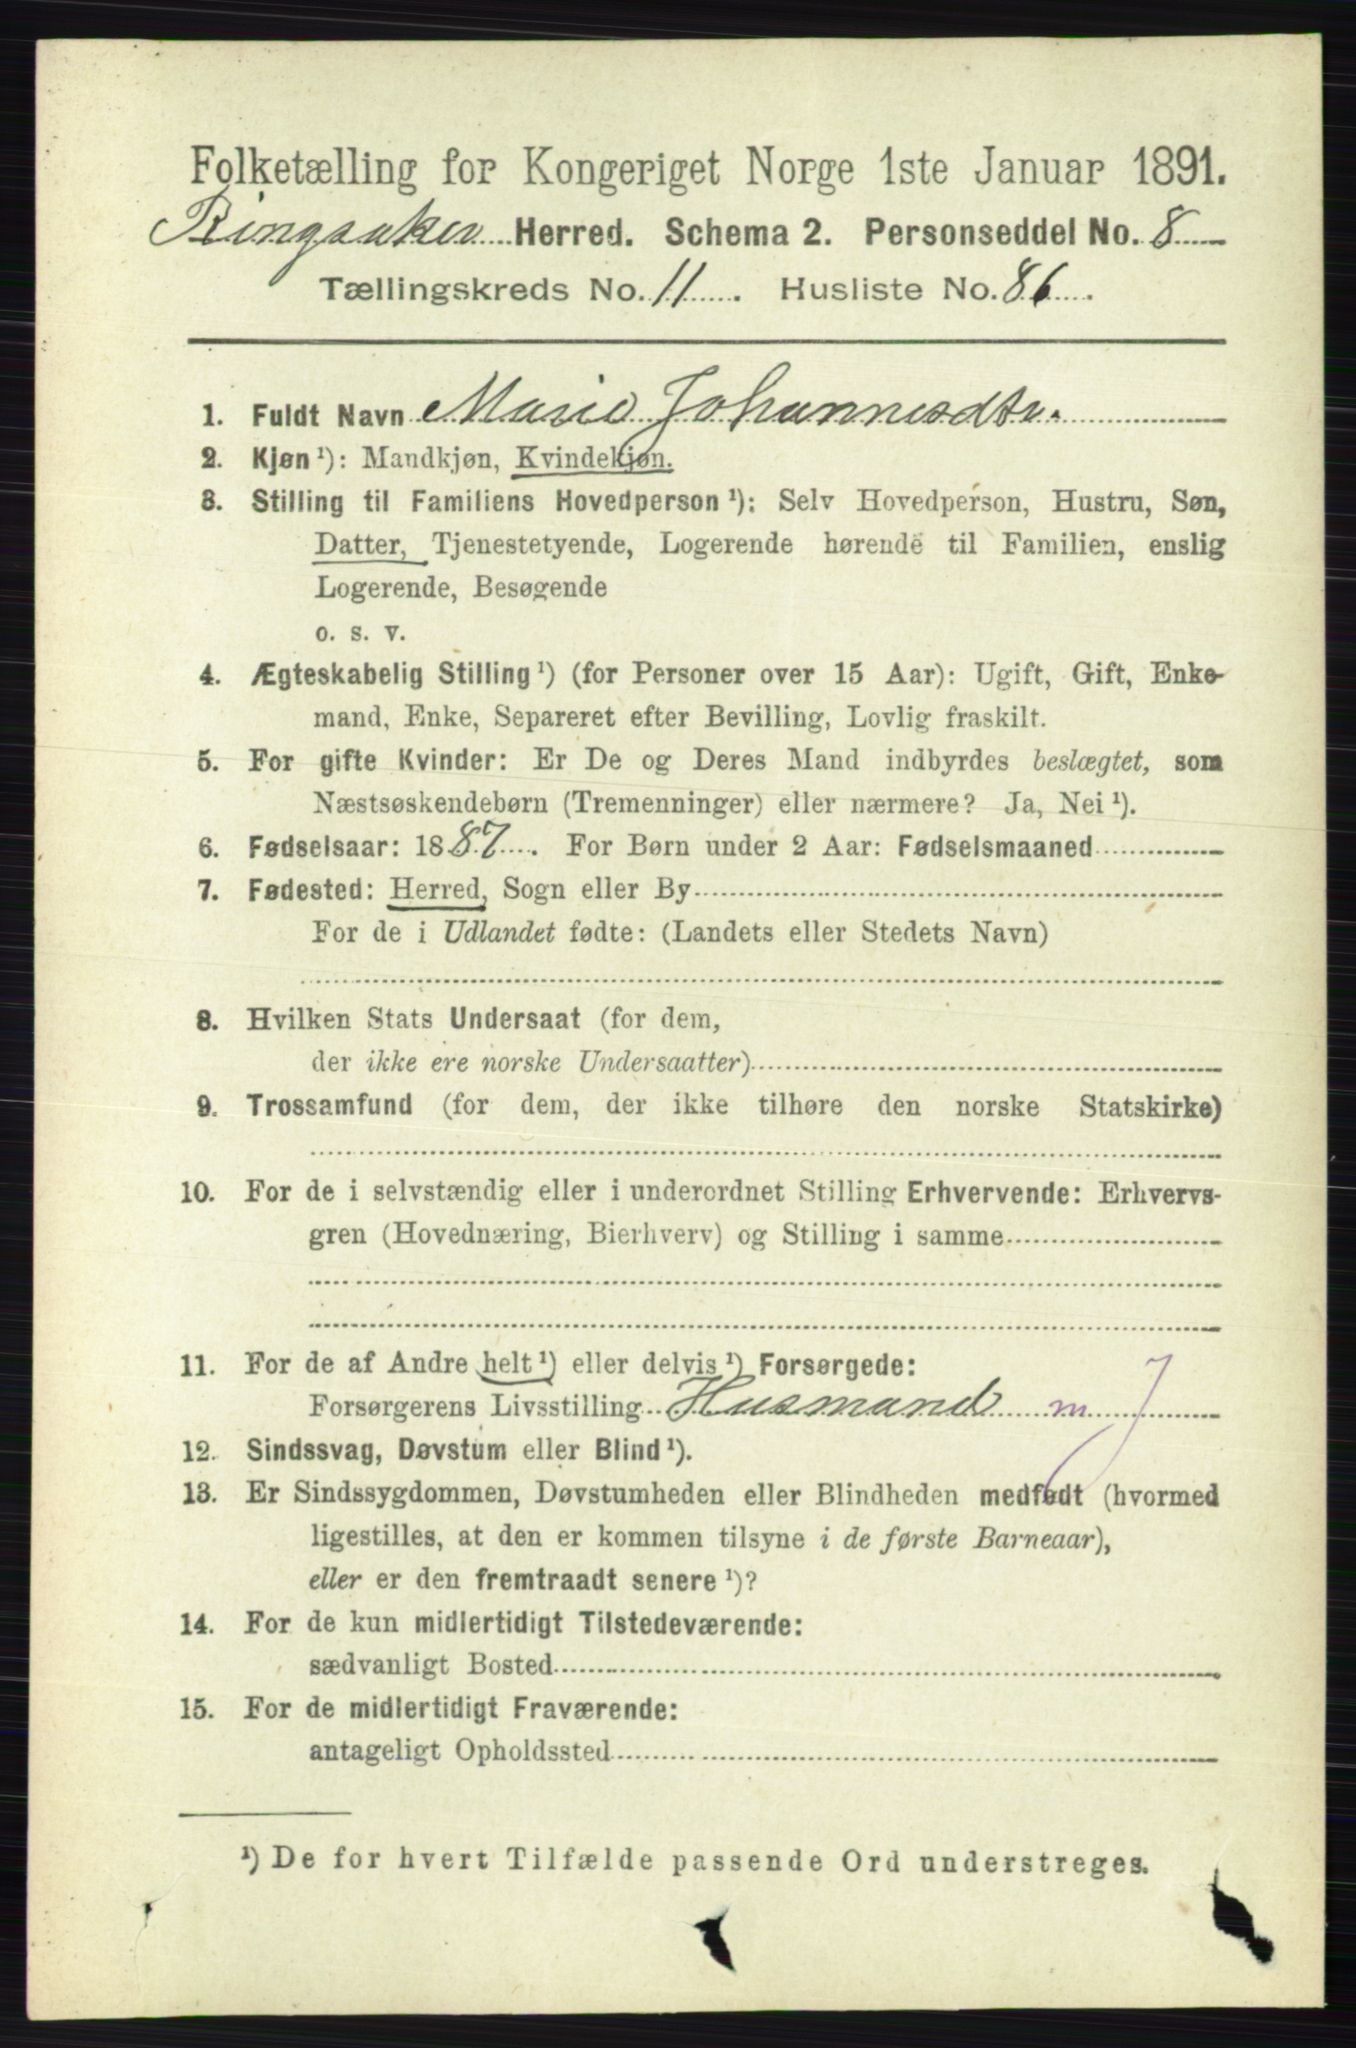 Folketælling for Kongeriget Norge 1ste Januar 1891.
Ringsaker Herred. Schema 2. Personseddel No. 8
Tællingskreds No. 11. Husliste No. 86.
1. Fuldt Navn Marie Johannesdtr.
2. Kjøn ¹): Mandkjøn, Kvindekjøn.
3. Stilling til Familiens Hovedperson ¹): Selv Hovedperson, Hustru, Søn,
Datter, Tjenestetyende, Logerende hørende til Familien, enslig
Logerende, Besøgende
o. s. v.
4. Ægteskabelig Stilling ¹) (for Personer over 15 Aar): Ugift, Gift, Enke-
mand, Enke, Separeret efter Bevilling, Lovlig fraskilt.
5. For gifte Kvinder: Er De og Deres Mand indbyrdes beslægtet, som
Næstsøskendebørn (Tremenninger) eller nærmere? Ja, Nei ¹).
6. Fødselsaar: 1887. For Børn under 2 Aar: Fødselsmaaned
7. Fødested: Herred, Sogn eller By
For de i Udlandet fødte: (Landets eller Stedets Navn)
8. Hvilken Stats Undersaat (for dem,
der ikke ere norske Undersaatter)
9. Trossamfund (for dem, der ikke tilhøre den norske Statskirke)
10. For de i selvstændig eller i underordnet Stilling Erhvervende: Erhvervs-
gren (Hovednæring, Bierhverv) og Stilling i samme
11. For de af Andre helt ¹) eller delvis ¹) Forsørgede:
Forsørgerens Livsstilling Husmand m J
12. Sindssvag, Døvstum eller Blind ¹).
13. Er Sindssygdommen, Døvstumheden eller Blindheden medfødt (hvormed
ligestilles, at den er kommen tilsyne i de første Barneaar),
eller er den fremtraadt senere ¹)?
14. For de kun midlertidigt Tilstedeværende:
sædvanligt Bosted
15. For de midlertidigt Fraværende:
antageligt Opholdssted
¹) De for hvert Tilfælde passende Ord understreges.